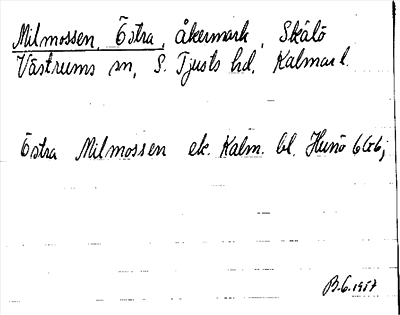 Milmossen, Östra, åkermark, Skälö
Västrums sn, S. Tjusts hd, Kalmar l.
Östra Milmossen ek. Kalm. bl. Hunö 6G6;
B.G.1957